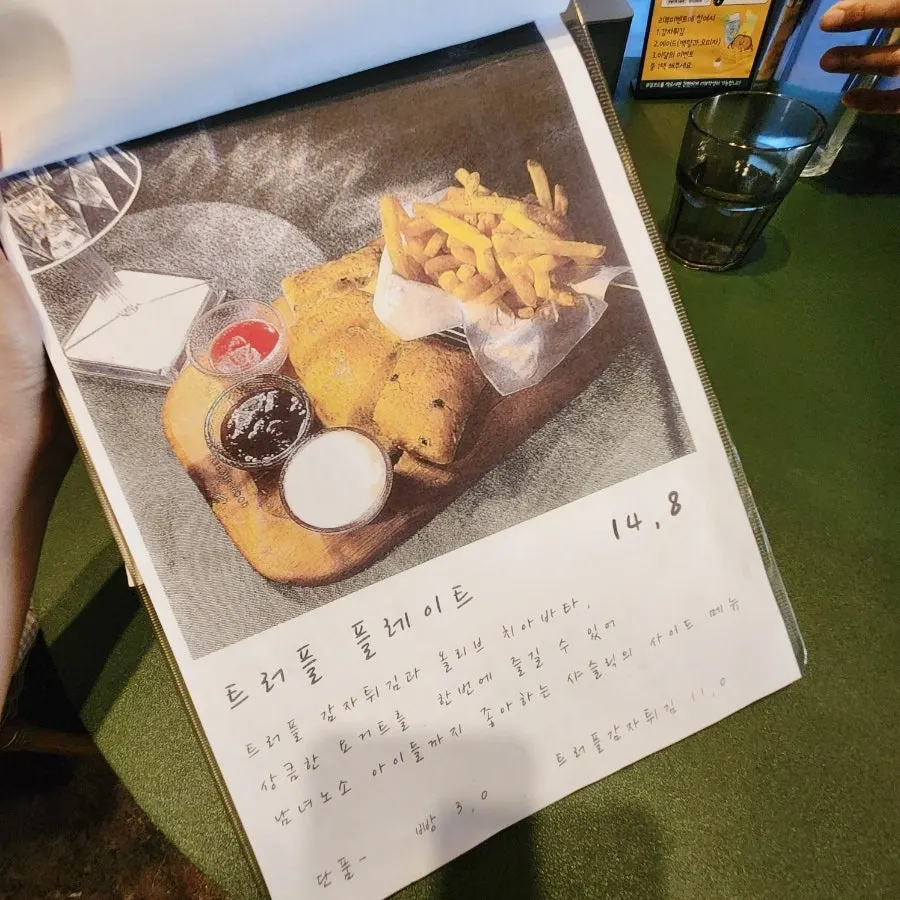 리뷰이벤트에 참여시
1.감자튀김
2.에이드(백향과,오미자)
3.이달의 이벤트
중 1택 해주세요
14,8
트러플 플레이트
트러플 감자튀김과 올리브 치아바타,
상큼한 요거트를 한번에 즐길 수 있어
남녀노소 아이들까지 좋아하는 샤슬릭의 사이트 메뉴
단품- 빵 3,0 트러플감자튀김 11,0